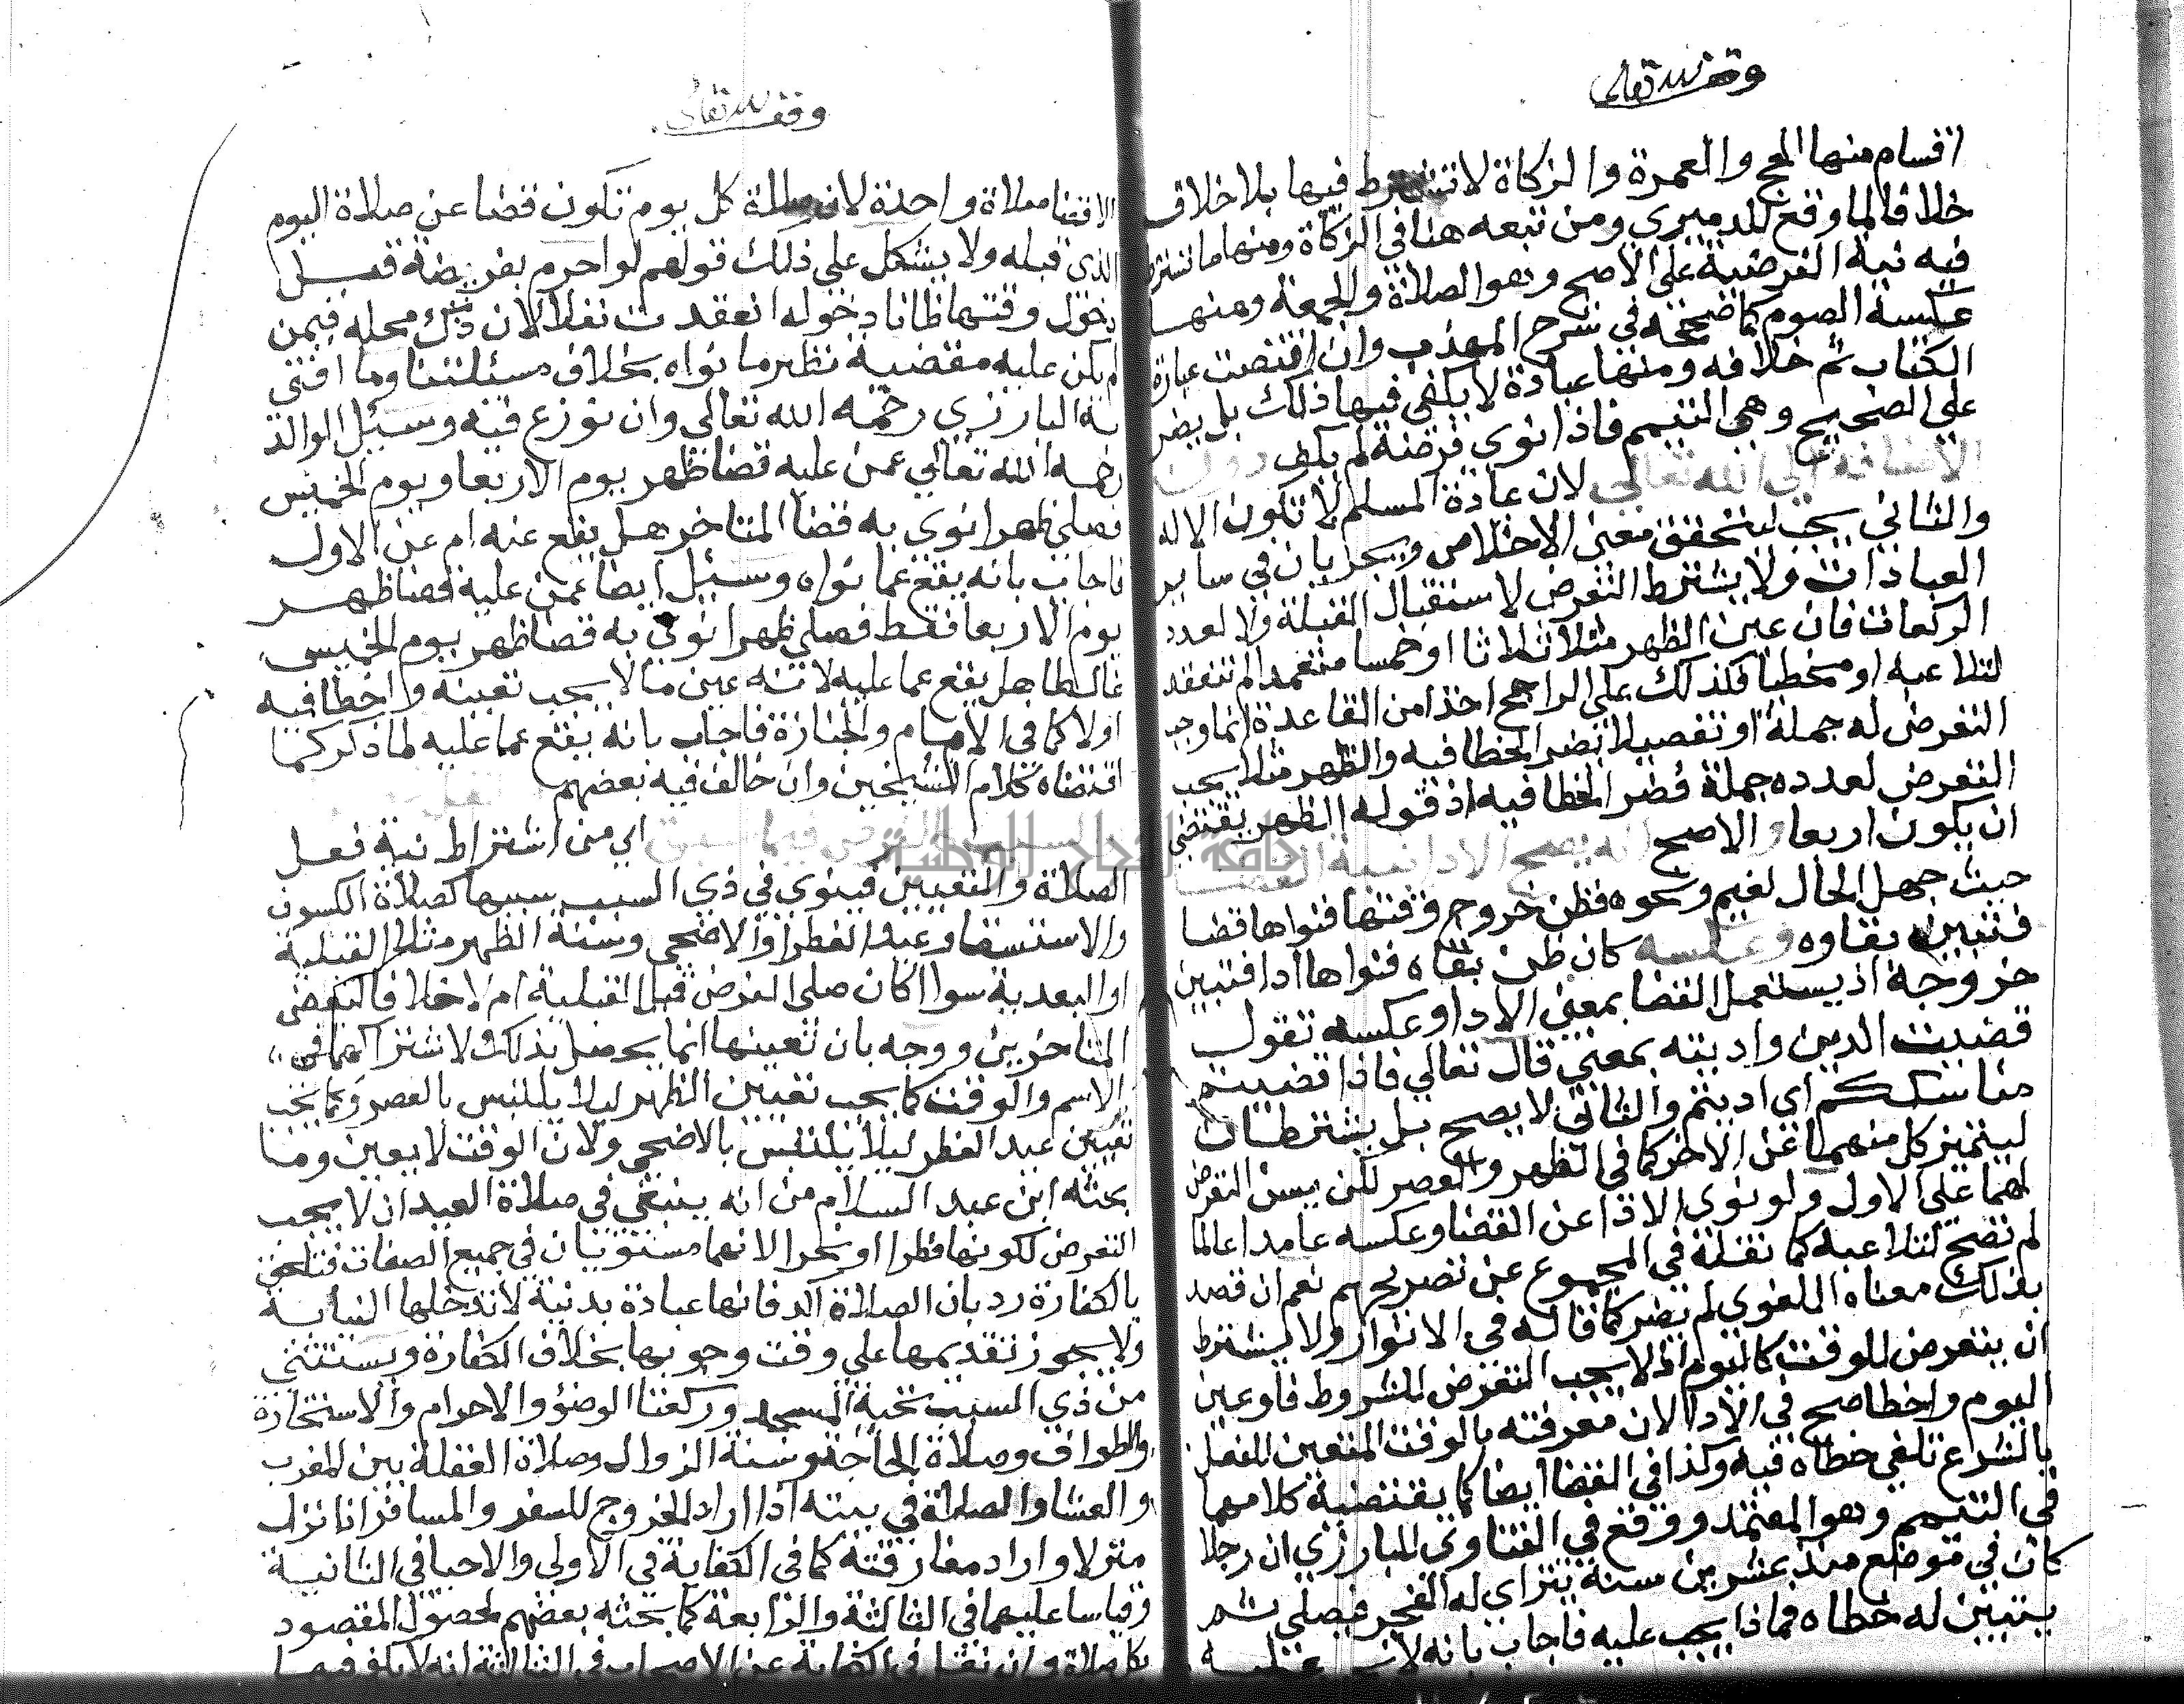 وقف لله تعالى
اقسام منها الحج والعمرة والزكاة لا تشترط فيها بلا خلاف
خلافا لما وقع للدميري ومن تبعه هنا في الزكاة ومنها ما تشترط
فيه نية الفرضية على الاصح وهو الصلاة والجمعة ومنها
عكسه الصوم كما صححه في شرح المهذب وان اقتضت عبارة
الكتاب ثم خلافه ومنها عبادة لا يكفي فيها ذلك بل يضر
على الصحيح وهي التيمم فاذا نوى فرضه لم يكف دون
الاضافة الى الله تعالى لان عبادة المسلم لا تكون الا له
والثاني يجب ليتحقق معنى الاخلاص ويجريان في ساير
العبادات ولا يشترط التعرض لاستقبال القبلة ولا لعدد
الركعات فان عين الظهر مثلا ثلاثا او خمسا متعمدا لم تنعقد
لتلاعبه او مخطيا فكذلك على الراجح اخذا من القاعدة انما وجب
التعرض له جملة او تفصيلا يضر الخطا فيه والظهر مثلا يجب
التعرض لعدده جملة فضر الخطا فيه اذ قوله الظهر يقتضي
ان يكون اربعا والاصح انه يصح الادا بنية القضا
حيث جهل الحال لغيم ونحوه فظن خروج وقتها فنواها قضا
فتبين بقاوه وعكسه كان ظن بقاه فنواها ادا فتبين
خروجه اذ يستعمل القضا بمعنى الادا وعكسه تقول
قضيت الدين واديته بمعنى قال تعالى فاذا قضيتم
مناسككم اي اديتم والثاني لا يصح بل يشترطان
ليتميز كل منهما عن الاخر كما في الظهر والعصر لكن يسن التعرض
لهما على الاول ولو نوى الادا عن القضا وعكسه عامدا عالما
لم تصح لتلاعبه كما نقله في المجموع عن تصريحهم نعم ان قصد
بذلك معناه اللغوي لم يضر كما قاله في الانوار ولا يشترط
ان يتعرض للوقت كاليوم اذ لا يجب التعرض للشروط فلو عين
اليوم واخطا صح في الادا لان معرفته بالوقت المتعين للفعل
بالشرع تلغي خطاه فيه وكذا في القضا ايضا كما يقتضية كلامهما
في التيمم وهو المعتمد ووقع في الفتاوي للبارزي ان رجلا
كان في موضع منذ عشرين سنة يتراي له الفجر فيصلي ثم
يتبين له خطاه فماذا يجب عليه فاجاب بانه لا يجب عليه
وقف لله تعالى
الا قضا صلاة واحدة لان صلاة كل يوم تكون قضا عن صلاة اليوم
الذي قبله ولا يشكل على ذلك قولهم لو احرم بفريضة قبل
دخول وقتها ظانا دخوله انعقدت نفلا لان ذلك محله فيمن
لم يكن عليه مقضية نظير ما نواه بخلاف مسئلتنا وما افتى
به البارزي رحمه الله تعالى وان نوزع فيه وسئل الوالد
رحمه الله تعالى عمن عليه قضا ظهر يوم الاربعا ويوم الخميس
فصلى ظهرا نوى به قضا المتاخر هل يقع عنه ام عن الاول
فاجاب بانه يقع عما نواه وسئل ايضا عمن عليه قضا ظهر
يوم الاربعا فقط فصلى ظهرا نوى به قضا ظهر يوم الخميس
غالطا هل يقع عما عليه لانه عين ما لا يجب تعينه واخطا فيه
اولا كما في الامام والجنازة فاجاب بانه يقع عما عليه لما ذكر كما
اقتضاه كلام الشيخين وان خالف فيه بعضهم
اي من اشتراط نية فعل
الصلاة والتعيين فينوي في ذي السبب سببها كصلاة الكسوف
والاستسقا وعيد الفطر او الاضحى وسنة الظهر مثلا القبلية
او البعدية سوا اكان صلى الفرض قبل القبلية ام لا خلافا لبعض
المتاخرين ووجه بان تعينها انما يحصل بذلك ولاشتراكهما في
الاسم والوقت كما يجب تعيين الظهر ليلا يلتبس بالعصر وكما يجب
تعيين عيد الفطر ليلا يلتبس بالاضحى ولان الوقت لا يعين وما
بحثه ابن عبد السلام من انه ينبغي في صلاة العيد ان لا يجب
التعرض لكونها فطرا او نحرا لانهما مستويان في جميع الصفات فتلحق
بالكفارة رد بان الصلاة اكد فانها عبادة بدنية لا تدخلها النيابة
ولا يجوز تقديمها على وقت وجوبها بخلاف الكفارة ويستثنى
من ذي السبب تحية المسجد وركعتا الوضؤ والاحرام والاستخارة
والطواف وصلاة الحاجة وسنة الزوال وصلاة الغفلة بين المغرب
والعشا والصلاة في بيته اذا اراد الخروج للسفر والمسافر اذا نزل
منزلا واراد مفارقته كما في الكفاية في الاولى والاحيا في الثانية
وقياسا عليهما في الثالثة والرابعة كما بحثه بعضهم لحصول المقصود
بكل صلاة وان نقل في الكفاية عن الاصحاب في الثالثة انه لا يكفي فيها
جامعة النجاح الوطنية